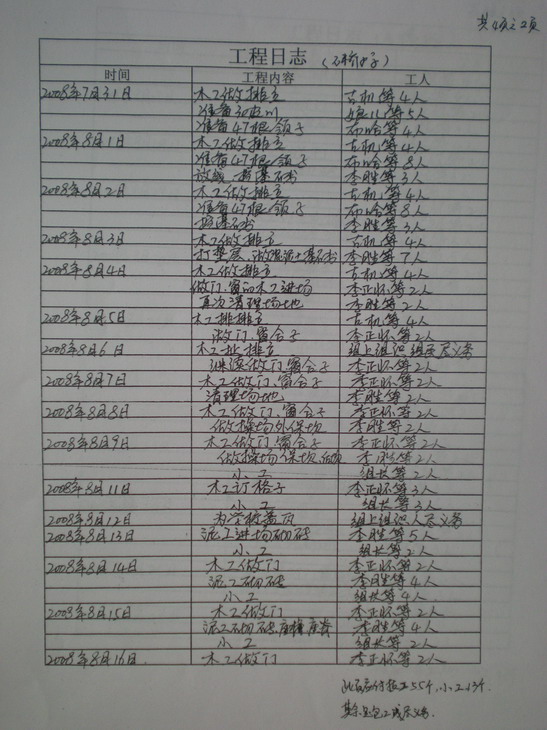 共4页之2页
工程日志
时间 工程内容 工人
2008年7月31日 木工做排立 吉机等4人
准备 等5人
准备47根领子 布哈等4人
2008年8月1日 木工做排立 吉机等4人
准备47根领子 布哈等8人
放线、 李胜等3人
2008年8月2日 木工做排立 吉机等4人
准备47根领子 布哈等8人
李胜等3人
2008年8月3日 木工做排立 吉机等4人
打垫层、做混泥土 李胜等7人
2008年8月4日 木工做排立 吉机等4人
做门、窗的木工进场 李正怀等2人
再次清理场地 李胜等2人
2008年8月5日 木工排排立 吉机等4人
做门、窗合子 李正怀等2人
2008年8月6日 木工 排立 组上组织 义务
继续做门、窗合子 李正怀等2人
2008年8月7日 木工做门、窗合子 李正怀等2人
清理场地 李胜等2人
2008年8月8日 木工做门、窗合子 李正怀等2人
做操场外保坎 李胜等2人
2008年8月9日 木工做门、窗合子 李正怀等2人
做操场保坎、 李胜等2人
小工 组长等2人
2008年8月11日 木工订格子 李正怀等3人
小工 组长等3人
2008年8月12日 为学校盖瓦 组上组织 义务
2008年8月13日 泥工进场砌砖 李胜等5人
小工 组长等2人
2008年8月14日 木工做门 李正怀等2人
泥工砌砖 李胜等4人
小工 组长等4人
2008年8月15日 木工做门 李正怀等2人
泥工砌砖、 李胜等4人
小工 组长等2人
2008年8月16日 木工做门 李正怀等2人
此页应付技工55个,小工13个
其余是包工或尽义务